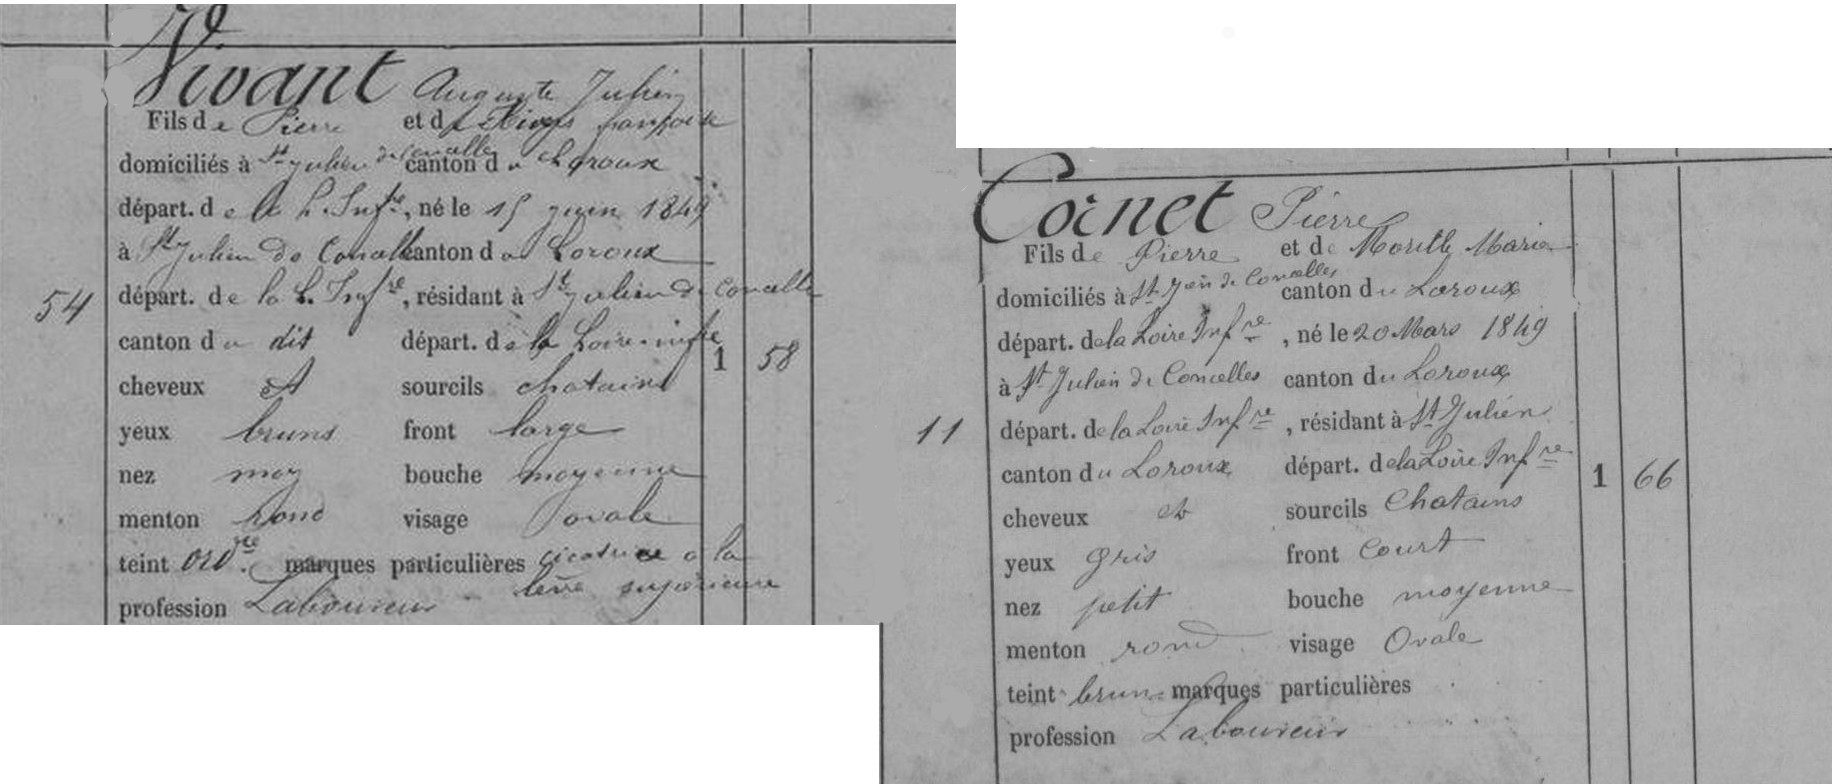 Vivant Auguste Julien
Fils de Pierre et de françoise
domiciliés à St Julien de Concelles canton du Loroux
départ. de la L. Infre, né le 15 juin 1849
à St Julien de Concelles canton du Loroux
54
départ. de la L. Infre, résidant à St Julien de Concelles
canton du dit départ. de la Loire-infre
1 58
cheveux et sourcils chatains
yeux bruns front large
nez moy bouche moyenne
menton rond visage ovale
teint ordre. marques particulières cicatrice a la
levre supérieure
profession Laboureur
Coinet Pierre
Fils de Pierre et de Marie
domiciliés à St Jën de Concelles canton du Loroux
départ. de la Loire Infre, né le 20 Mars 1849
à St Julien de Concelles canton du Loroux
11
départ. de la Loire Infre, résidant à St Julien
canton du Loroux départ. de la Loire Infre
1 66
cheveux et sourcils Chatains
yeux gris front court
nez petit bouche moyenne
menton rond visage Ovale
teint brun marques particulières
profession Laboureur